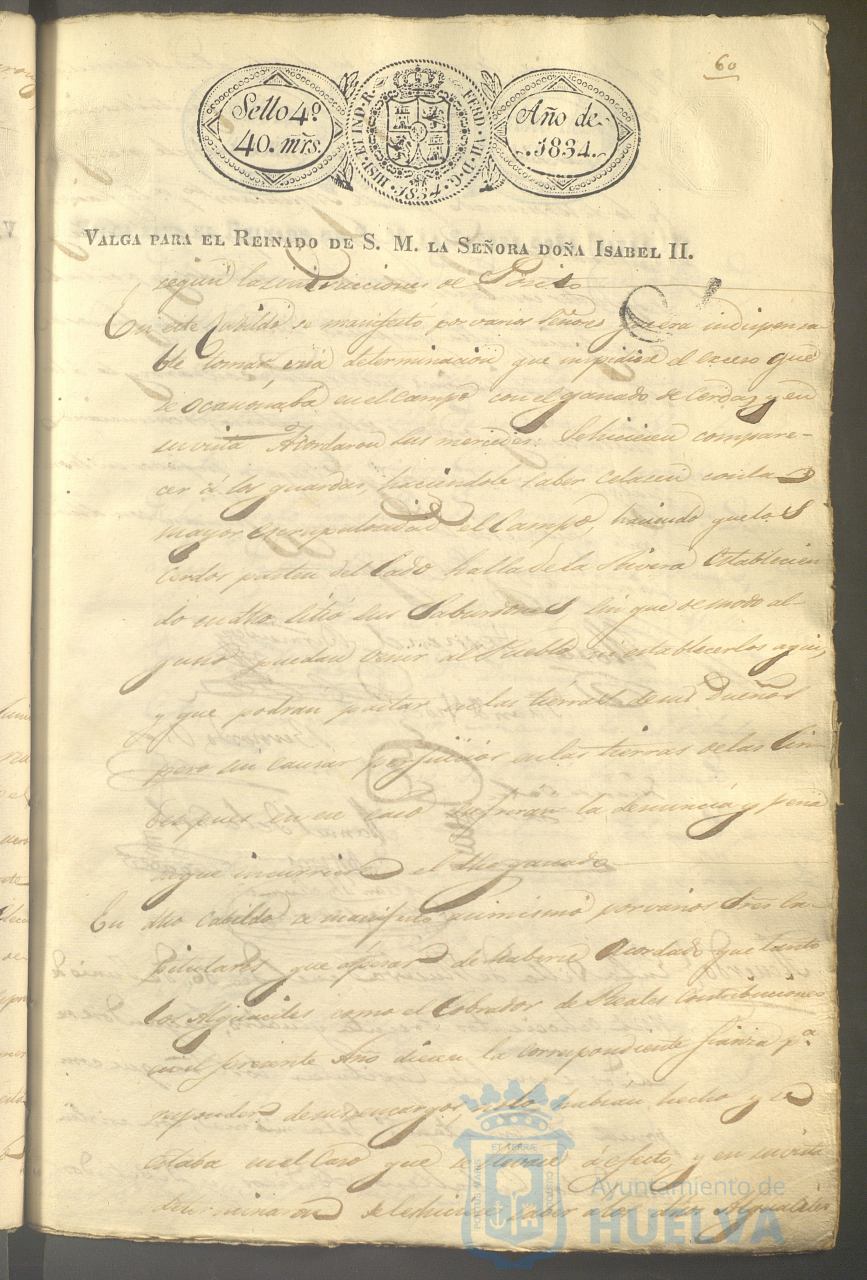 60
Sello 4º
40. mrs.
HISP. ET IND. R. FERD. VII. D. G.
1834
Año de
1834.
VALGA PARA EL REINADO DE S. M. LA SEÑORA DOÑA ISABEL II.
segun las instrucciones de Pósito
En este Cavildo se manifesto por varios Señores q.e era indispensa
ble tomar una determinacion que impidiese el exceso que
se ocacionaba en el campo con el ganado de Cerda, y en
su vista Acordaron sus mercedes: Se hiciesen compare-
cer á los guardas, haciendole saber celasen con la
mayor escrupulosidad el Campo, haciendo que los
cerdos pasten del lado halla de la Rivera Establecien
do en dho sitio sus Saburdones, sin que de modo al-
guno puedan venir al Pueblo ni establecerlos aqui,
y que podran pastar en las tierras de sus Dueños
pero sin causar perjuicios en las tierras de las Lin
des pues en su caso sufriran la denuncia y pena
a que incurriese el dho ganado
En dho Cabildo se manifesto asimismo por varios Sres Ca-
pitulares que apesar de haberse Acordado que tanto
los Alguaciles como el Cobrador de Reales Contribuciones
en el presente Año diesen la correspondiente fianza p.a
responder de sus encargos no lo habian hecho y se
estaba en el caso que se llevase á efecto, y en su vista
determinaron se le hiciese saber a los dhos Alguaciles
ET TERRÆ
Ayuntamiento de
HUELVA